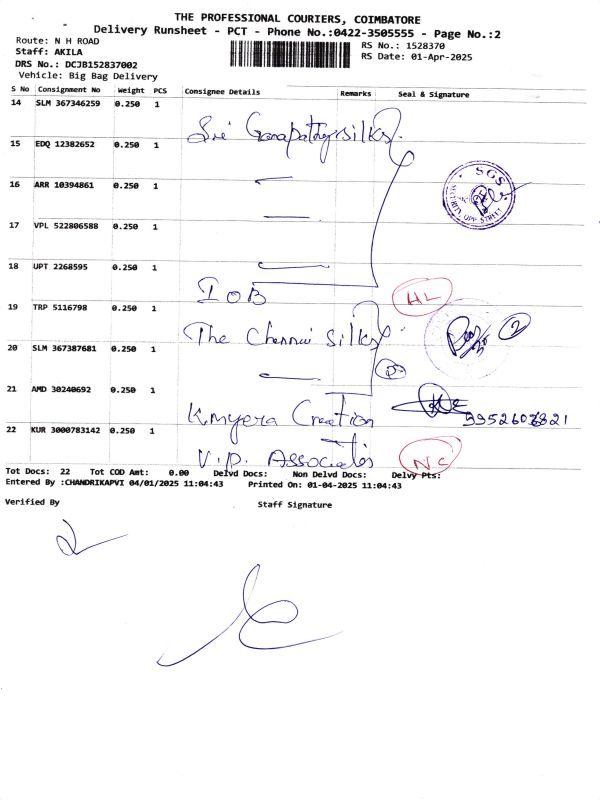 THE PROFESSIONAL COURIERS, COIMBATORE
Delivery Runsheet - PCT - Phone No.:0422-3505555 - Page No.:2
Route: N H ROAD
RS No.: 1528370
Staff: AKILA
RS Date: 01-Apr-2025
DRS No.: DCJB152837002
Vehicle: Big Bag Delivery
S No Consignment No Weight PCS Consignee Details Remarks Seal & Signature
14 SLM 367346259 0.250 1
Sri Ganapathy silks.
15 EDQ 12382652 0.250 1
16 ARR 10394861 0.250 1
SGS
SECURITY OPP STREET
17 VPL 522806588 0.250 1
18 UPT 2268595 0.250 1
IOB HL
19 TRP 5116798 0.250 1
The Chennai Silks 2
20 SLM 367387681 0.250 1
21 AMD 30240692 0.250 1
Kmyera Creation
22 KUR 3000783142 0.250 1
V.P. Associates NC
Tot Docs: 22 Tot COD Amt: 0.00 Delvd Docs: Non Delvd Docs: Delvy Pts:
Entered By :CHANDRIKAPVI 04/01/2025 11:04:43 Printed On: 01-04-2025 11:04:43
Verified By Staff Signature